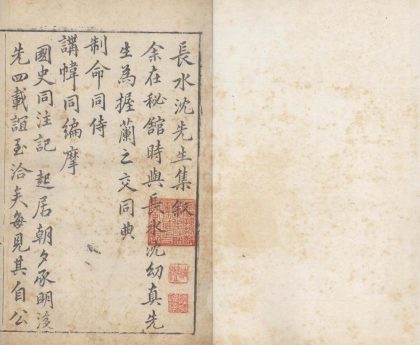 長水沈先生集叙
余在秘舘時與長水沈幼真先
生為握蘭之交同典
制命同侍
講幃同編摩
國史同注記 起居朝夕承明後
先四載誼至洽矣每見其自公